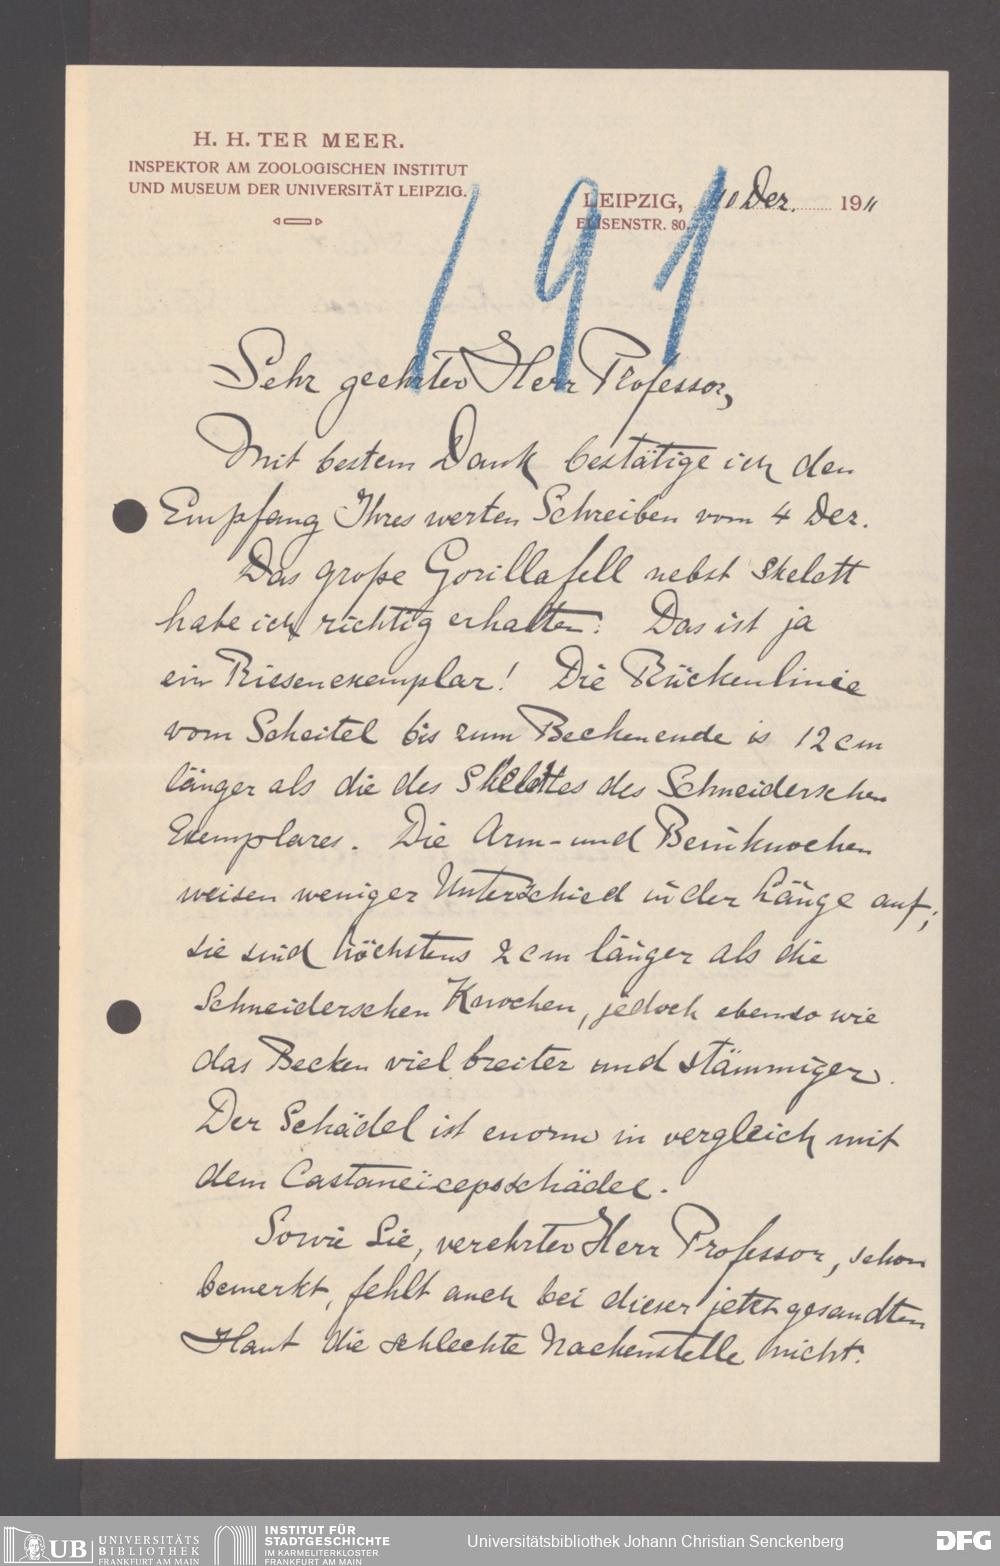 H. H. TER MEER.
INSPEKTOR AM ZOOLOGISCHEN INSTITUT
UND MUSEUM DER UNIVERSITÄT LEIPZIG.
LEIPZIG, 10 Dez. 1911
ELISENSTR. 80.
191
Sehr geehrter Herr Professor,
Mit bestem Dank bestätige ich den
Empfang Ihres werten Schreiben vom 4 Dez.
Das große Gorillafell nebst Skelett
habe ich richtig erhalten. Das ist ja
ein Riesenexemplar! Die Rückenlinie
vom Scheitel bis zum Beckenende is 12 cm
länger als die des Skelettes des Schneiderschen
Exemplares. Die Arm- und Beinknochen
weisen weniger Unterschied in der Länge auf;
sie sind höchstens 2 cm länger als die
Schneiderschen Knochen, jedoch ebenso wie
das Becken viel breiter und stämmiger.
Der Schädel ist enorm in vergleich mit
dem Castaneicepsschädel.
Sowie Sie, verehrter Herr Professor, schon
bemerkt, fehlt auch bei dieser jetzt gesandten
Haut die schlechte Nackenstelle nicht.
UB UNIVERSITÄTS
BIBLIOTHEK
FRANKFURT AM MAIN
INSTITUT FÜR
STADTGESCHICHTE
IM KARMELITERKLOSTER
FRANKFURT AM MAIN
Universitätsbibliothek Johann Christian Senckenberg
DFG